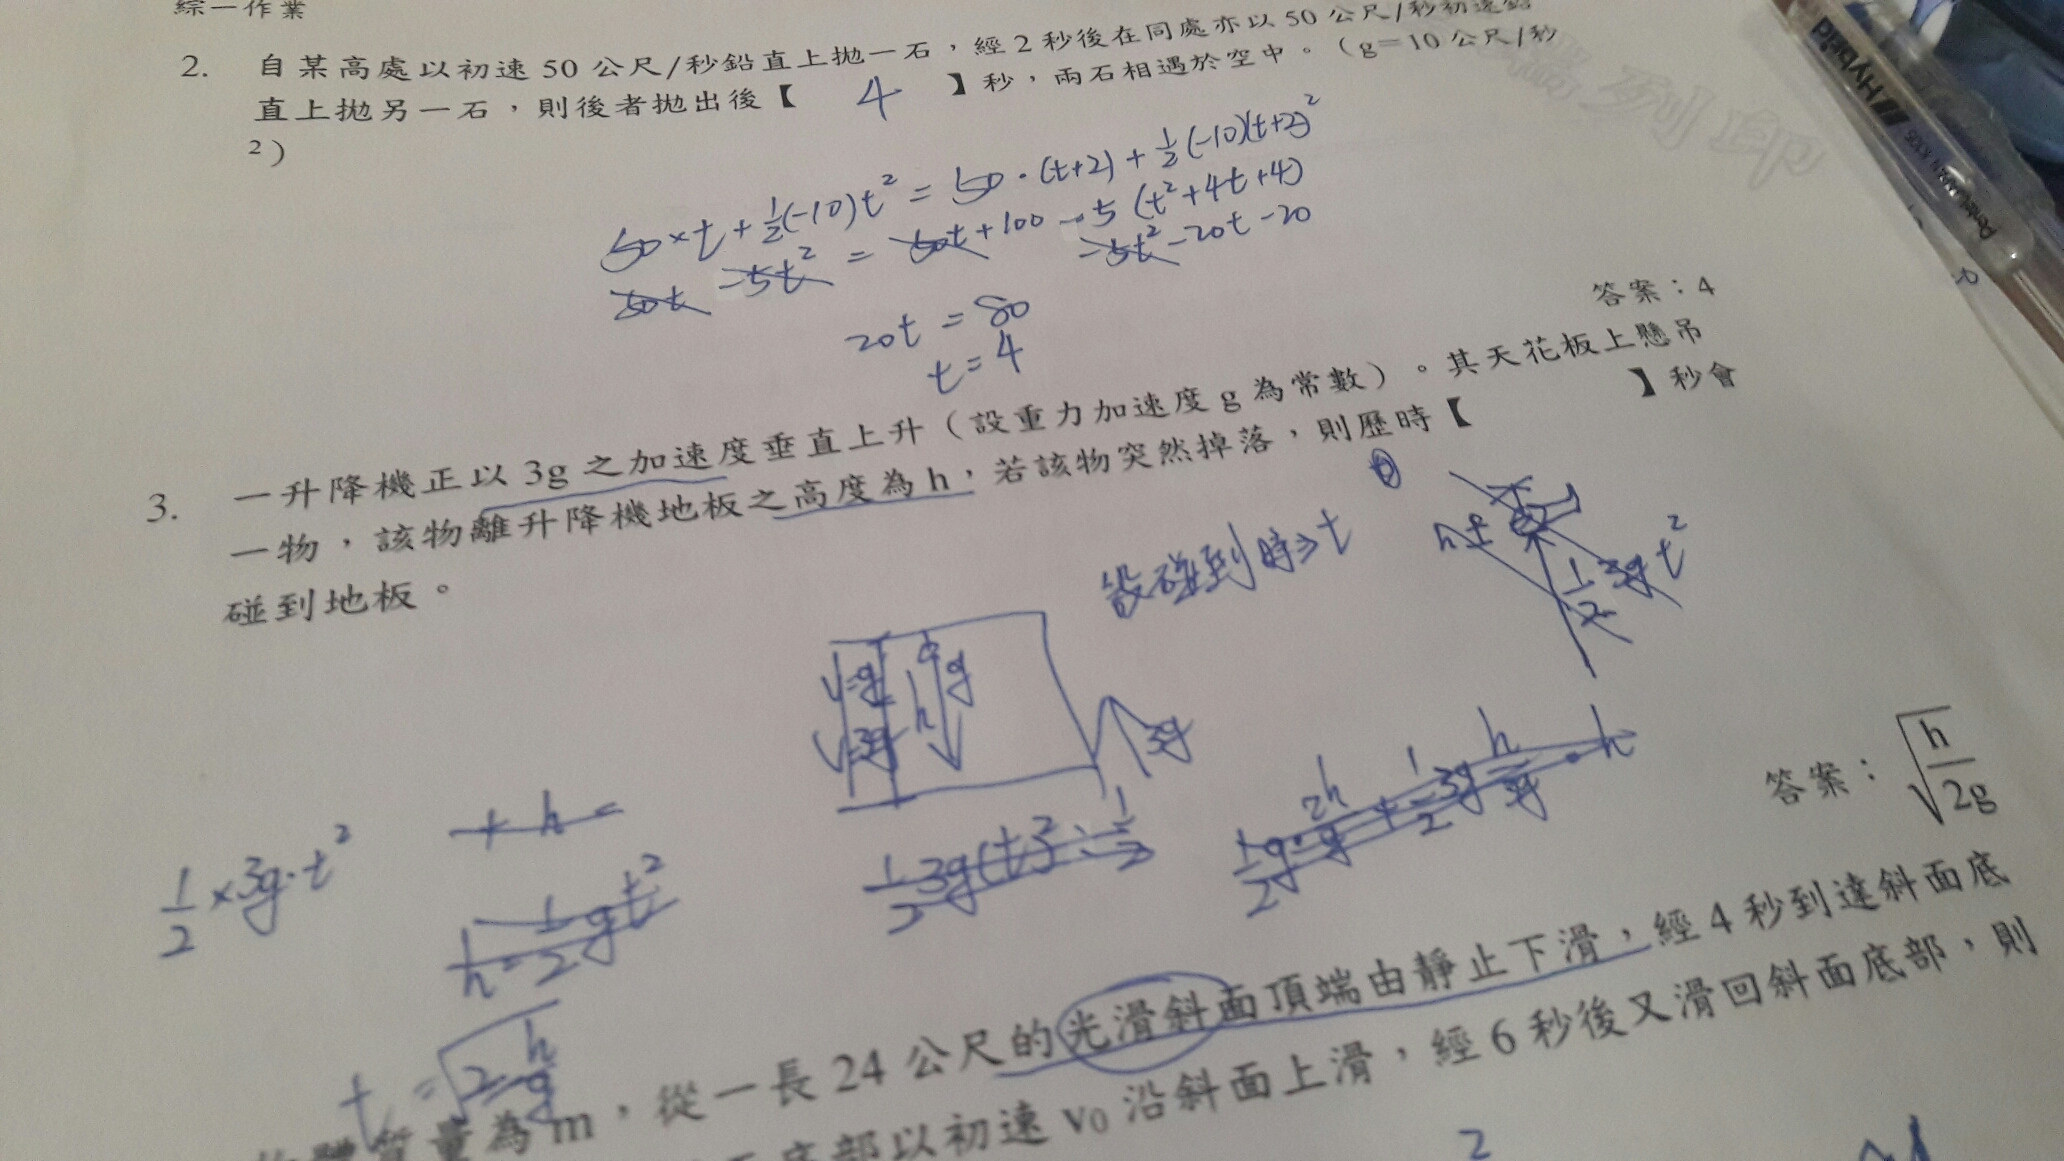 綜一作業
2. 自某高處以初速 50 公尺/秒鉛直上拋一石，經 2 秒後在同處亦以 50 公尺/秒初速鉛
直上拋另一石，則後者拋出後【 4 】秒，兩石相遇於空中。（g=10 公尺/秒
²）
50×t+½(-10)t² = 50·(t+2)+½(-10)(t+2)²
50t -5t² = 50t+100 -5(t²+4t+4)
-5t²-20t-20
20t = 80
t=4
答案：4
3. 一升降機正以 3g 之加速度垂直上升（設重力加速度 g 為常數）。其天花板上懸吊
一物，該物離升降機地板之高度為 h，若該物突然掉落，則歷時【 】秒會
碰到地板。
設碰到時 t
½3gt²
V=g
V=3g
h
g
3g
½×3g·t²
+h=
h=½gt²
½3g(t)²
t=√2h/g
答案：√h/2g
物體質量為 m，從一長 24 公尺的光滑斜面頂端由靜止下滑，經 4 秒到達斜面底
底部以初速 v₀ 沿斜面上滑，經 6 秒後又滑回斜面底部，則
2
Hybrid